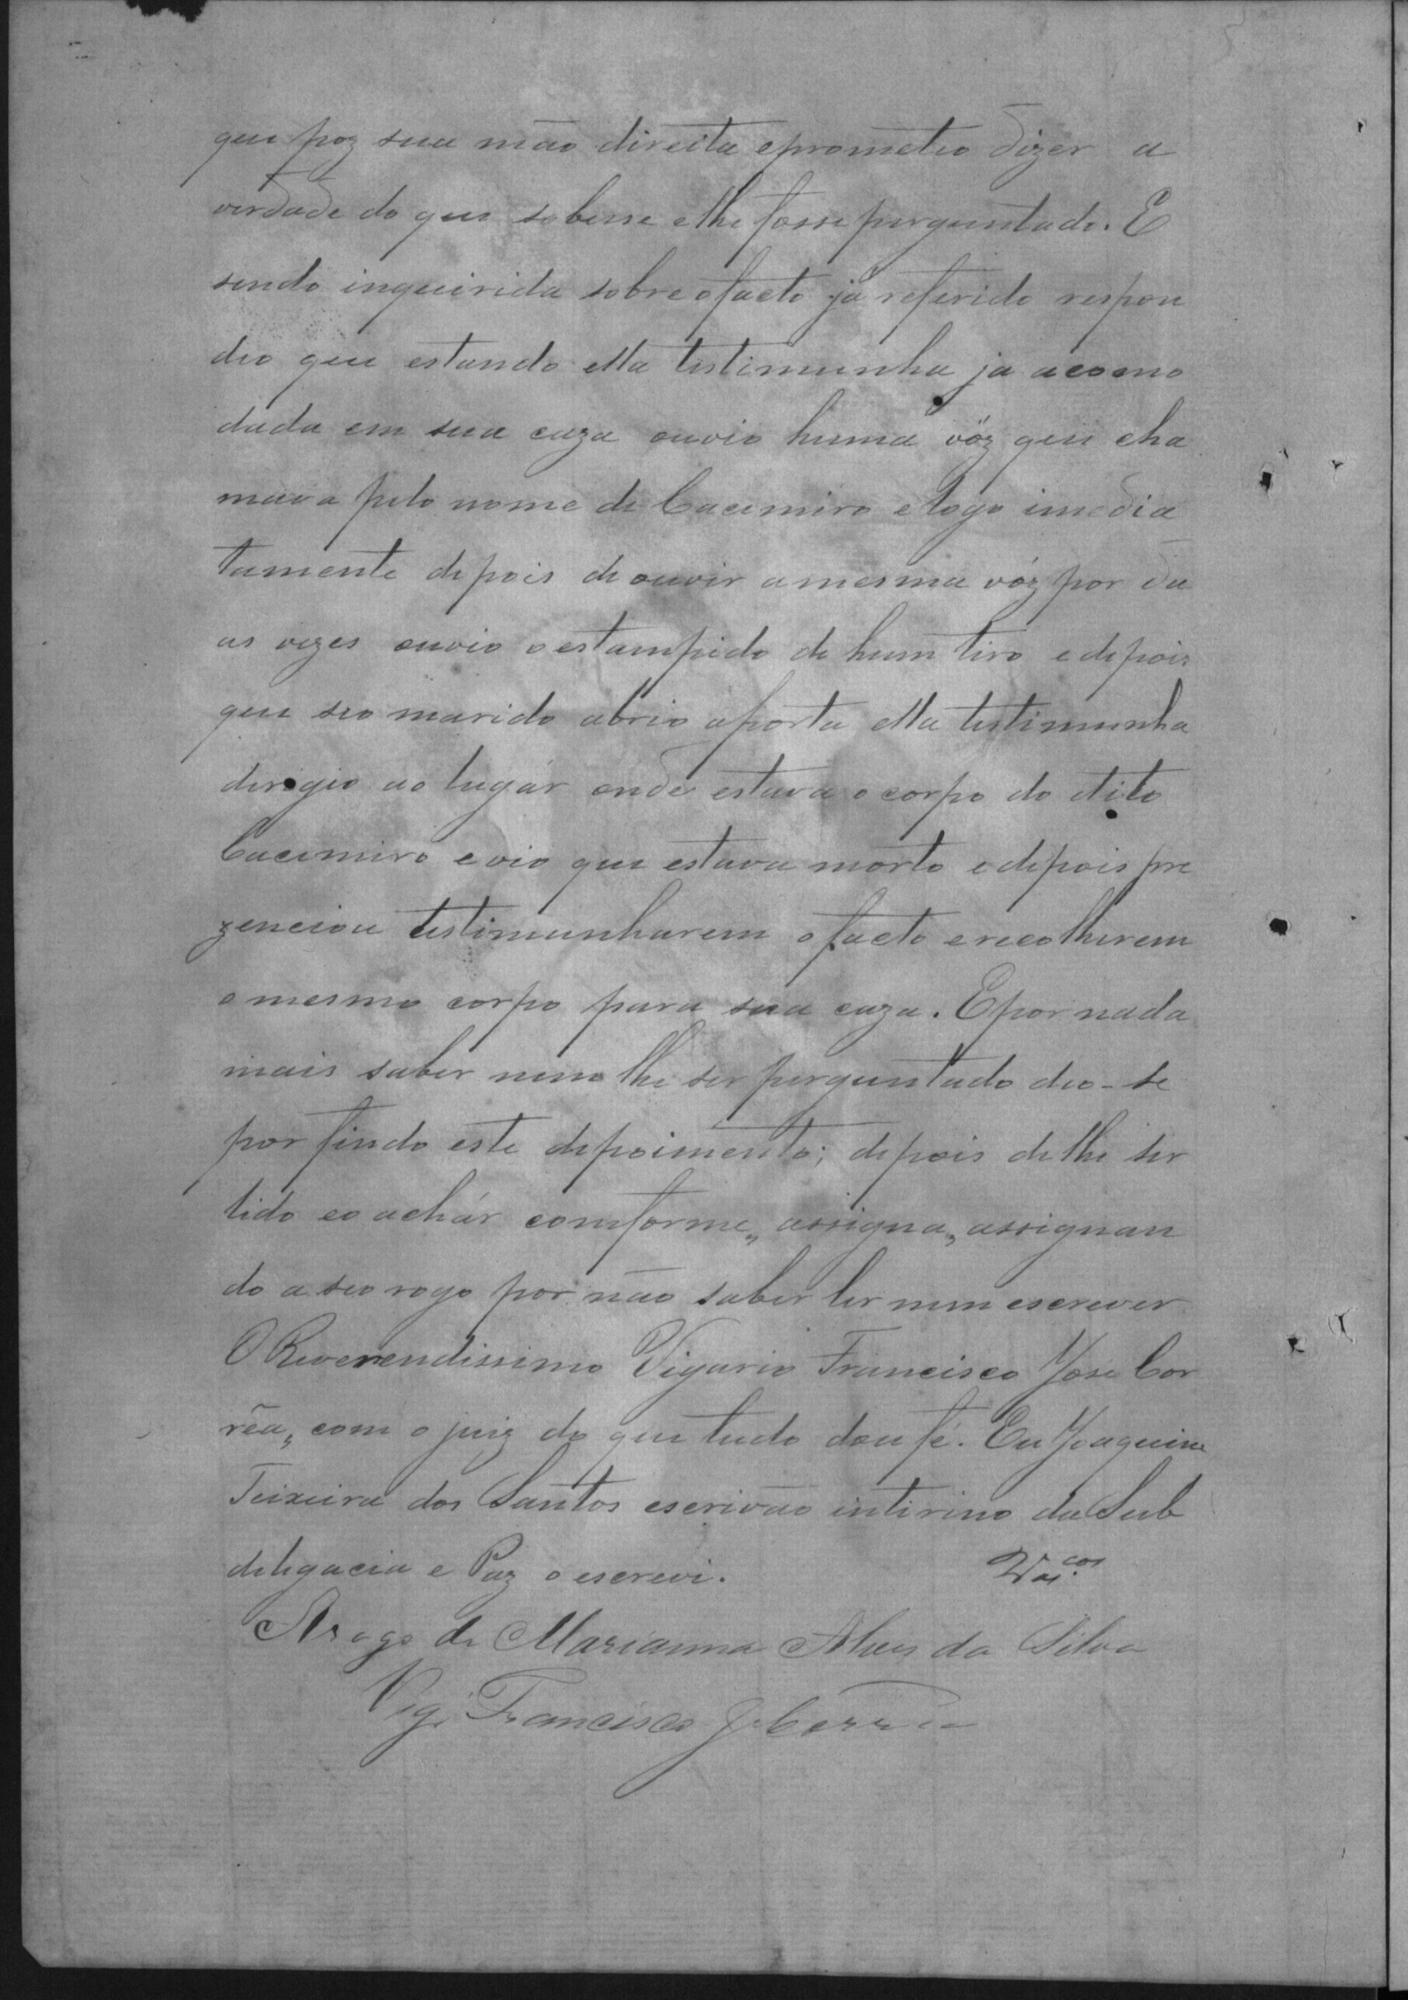 que poz sua mão direita eprometeo dizer a
verdade do que sobesse elhe fosse perguntado. E
sendo inqueirida sobre ofacto já referido respon
deo que estando ella testimunha ja acomo
dada em sua caza ouvio huma vóz que cha
mava pelo nome de Cacemiro elogo imedia
tamente depois deouvir amesma vóz por du
as vezes ouvio oestampido de hum tiro edepois
que seo marido abrio aporta ella testimunha
dirigio ao lugár onde estava o corpo do dito
Cacemiro evio que estava morto edepois pre
zenciou testimunharem ofacto erecolherem
o mesmo corpo para sua caza. Epor nada
mais saber nem lhe ser perguntado deo-se
por findo este depoimento; depois delhe ser
lido eo achár comforme, assigna, assignan
do a seo rogo por não saber ler nem escrever
O Reverendissimo Vigario Francisco José Cor
rêa, com o juiz do que tudo dou fé. Eu Joaquim
Teixeira dos Santos escrivão intirino da Sub
delegacia e Paz o escrevi.
Arogo de Marianna Alves da Silva
Vig. Francisco J. Corrêa